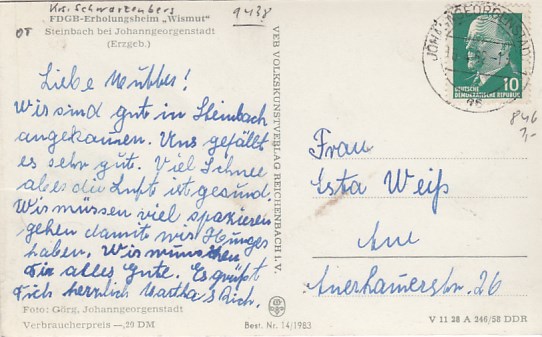 Krs. Schwarzenberg
9438
FDGB-Erholungsheim „Wismut"
OT
Steinbach bei Johanngeorgenstadt
(Erzgeb.)
Liebe
Wir sind gut in Steinbach
angekommen. Uns gefällt
es sehr gut. Viel Schnee
aber die Luft ist gesund.
Wir müssen viel spazieren
gehen damit wir Hunger
haben. Wir wünschen
Dir alles Gute. Es grüßt
Dich herzlich Martha & Rich.
Foto: Görg, Johanngeorgenstadt
Verbraucherpreis —,20 DM
Best. Nr. 14/1983
VEB VOLKSKUNSTVERLAG REICHENBACH I. V.
10
DEUTSCHE
DEMOKRATISCHE REPUBLIK
846
Frau
Weiß
Aue
Auerhamerstr. 26
V 11 28 A 246/58 DDR